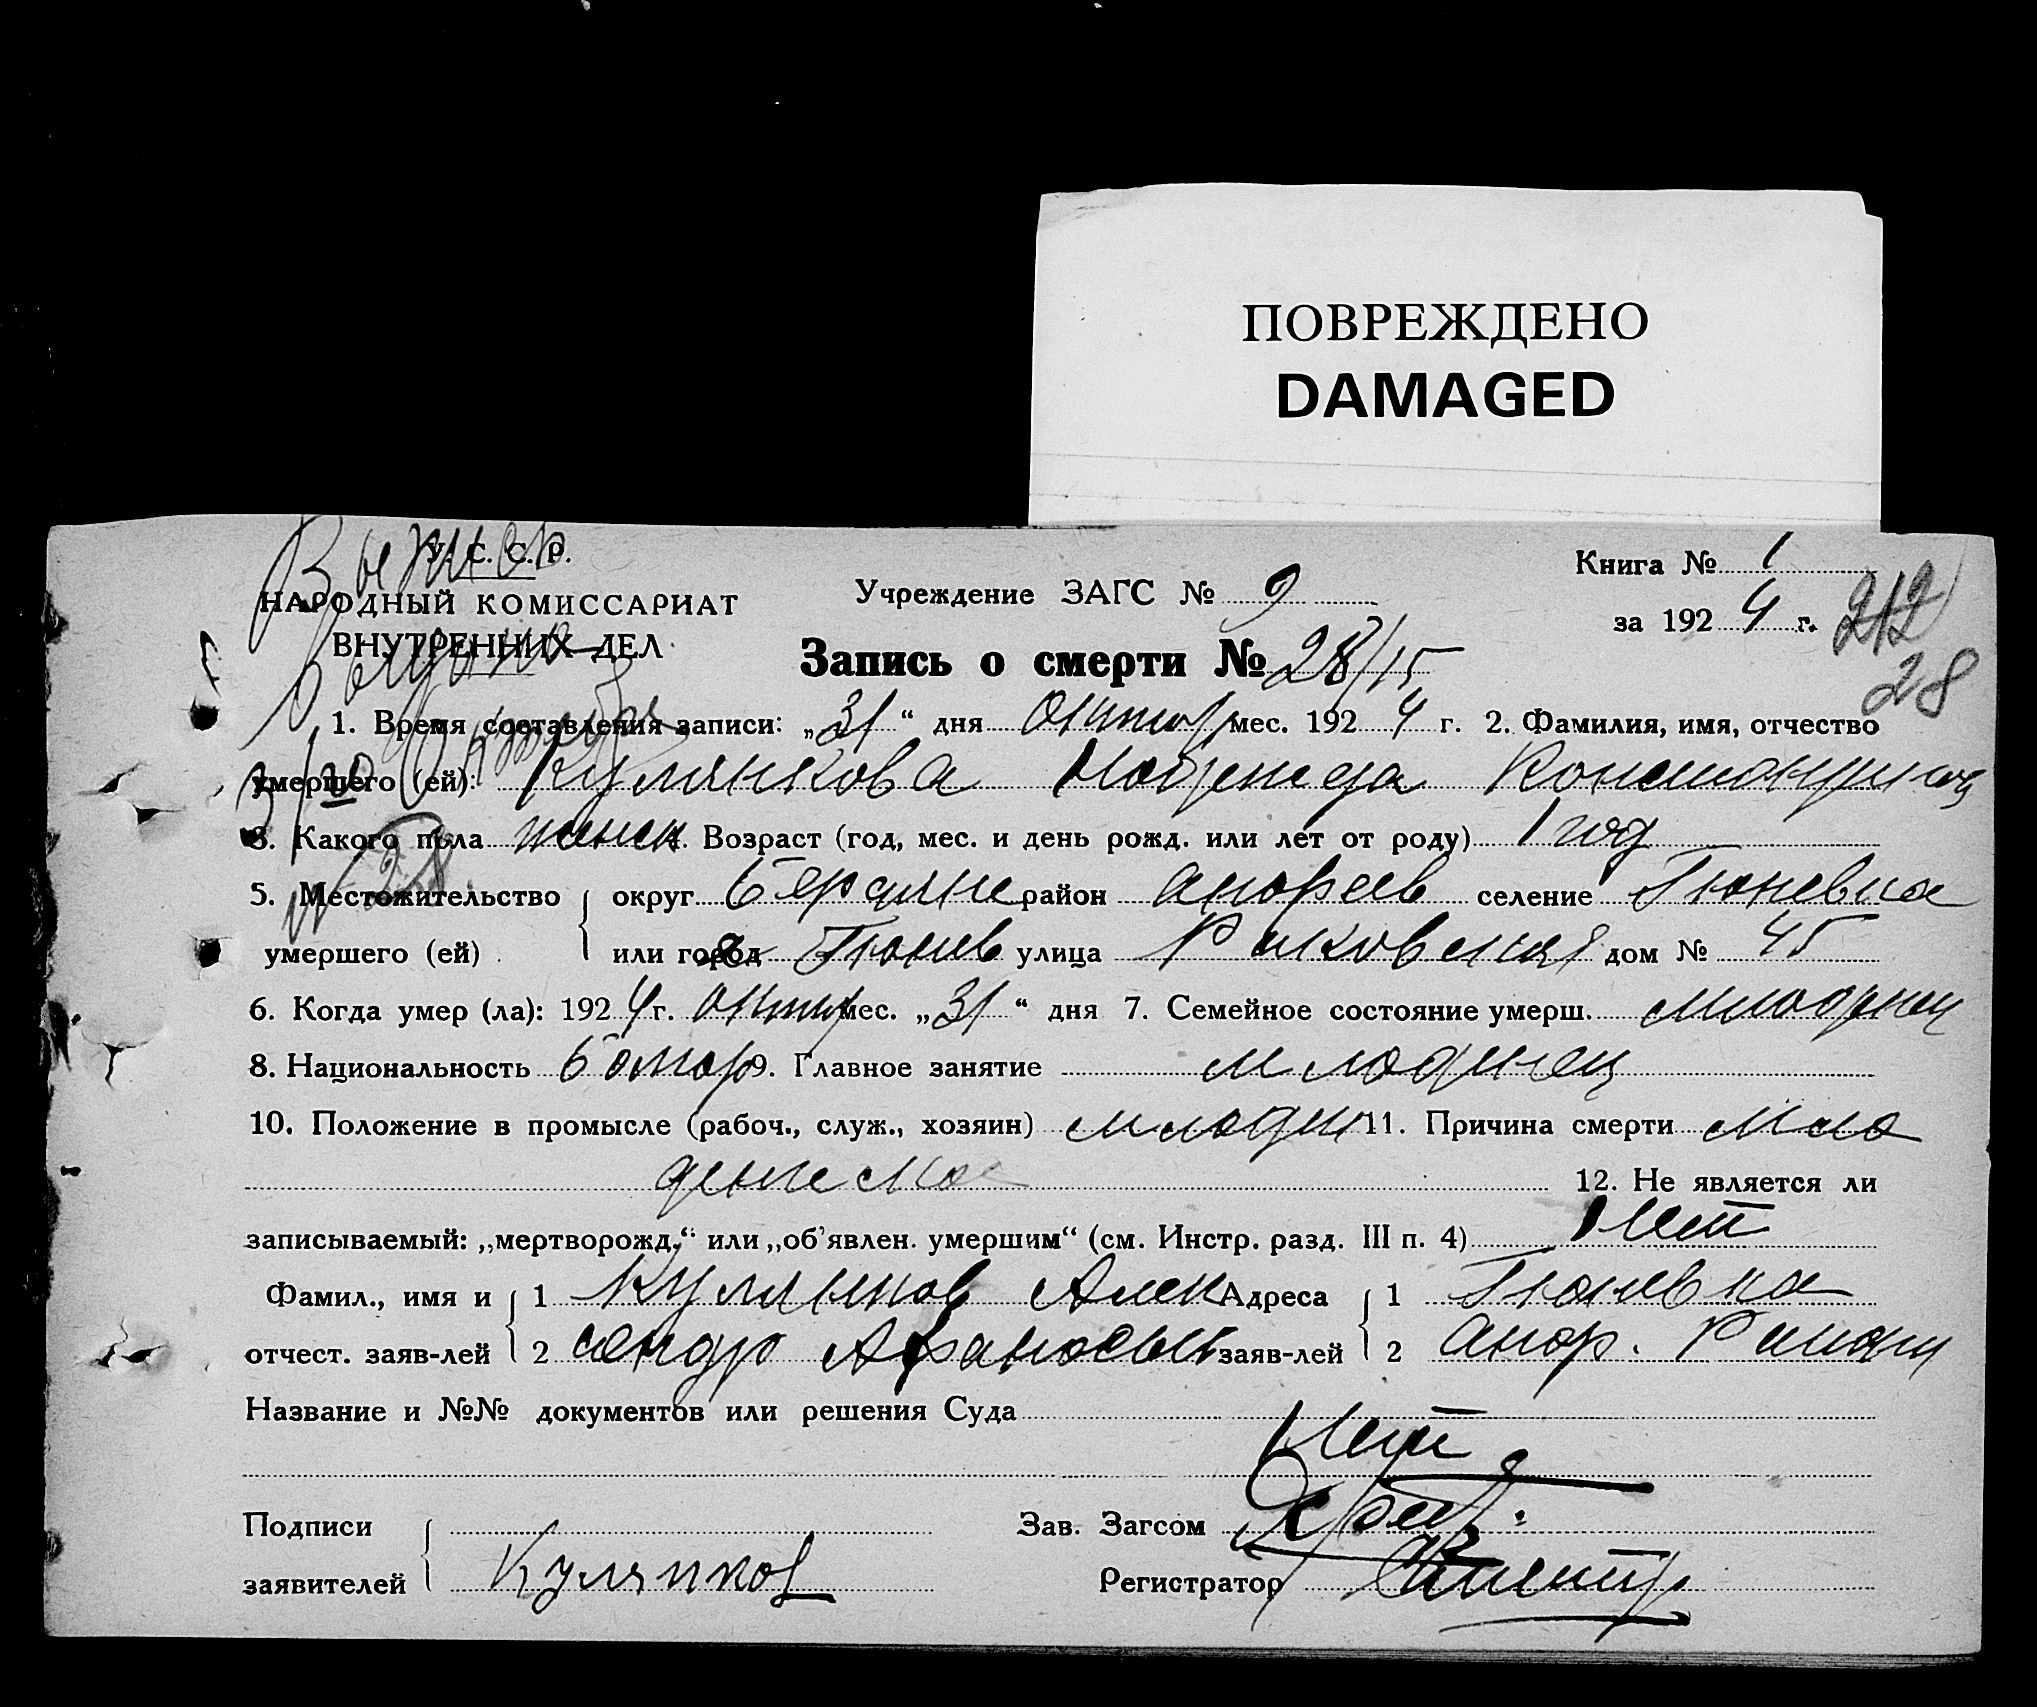 ПОВРЕЖДЕНО
DAMAGED
У. С. С. Р.
НАРОДНЫЙ КОМИССАРИАТ
ВНУТРЕННИХ ДЕЛ
Учреждение ЗАГС № 9
Книга № 1
за 1924 г.
212
28
Запись о смерти № 28/15
1. Время составления записи: „31“ дня октяб мес. 1924 г. 2. Фамилия, имя, отчество
умершего (ей): Кулинкова Надежда Константинов
3. Какого пола женск 4. Возраст (год, мес. и день рожд. или лет от роду) 1 год
5. Местожительство округ Бердянс район Андреев селение Гюневка
умершего (ей) или город Гюнев улица Раковская дом № 45
6. Когда умер (ла): 1924 г. октяб мес. „31“ дня 7. Семейное состояние умерш. младенец
8. Национальность болгар 9. Главное занятие младенец
10. Положение в промысле (рабоч., служ., хозяин) младен 11. Причина смерти мла
денческая 12. Не является ли
записываемый: „мертворожд.“ или „об'явлен. умершим“ (см. Инстр. разд. III п. 4) Нет
Фамил., имя и 1 Алек Адреса 1 Гюневка
отчест. заяв-лей 2 сандр Афанасьев заяв-лей 2 Андр. Района
Название и №№ документов или решения Суда
Нет
Подписи Зав. Загсом
заявителей Регистратор